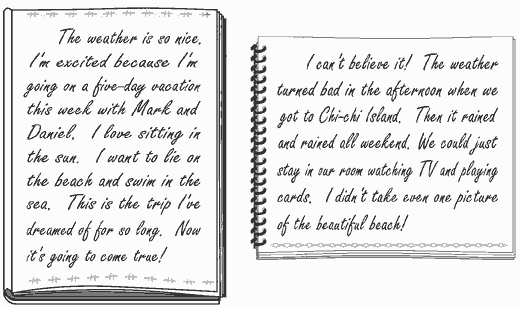 The weather is so nice.
I'm excited because I'm
going on a five-day vacation
this week with Mark and
Daniel. I love sitting in
the sun. I want to lie on
the beach and swim in the
sea. This is the trip I've
dreamed of for so long. Now
it's going to come true!
I can't believe it! The weather
turned bad in the afternoon when we
got to Chi-chi Island. Then it rained
and rained all weekend. We could just
stay in our room watching TV and playing
cards. I didn't take even one picture
of the beautiful beach!